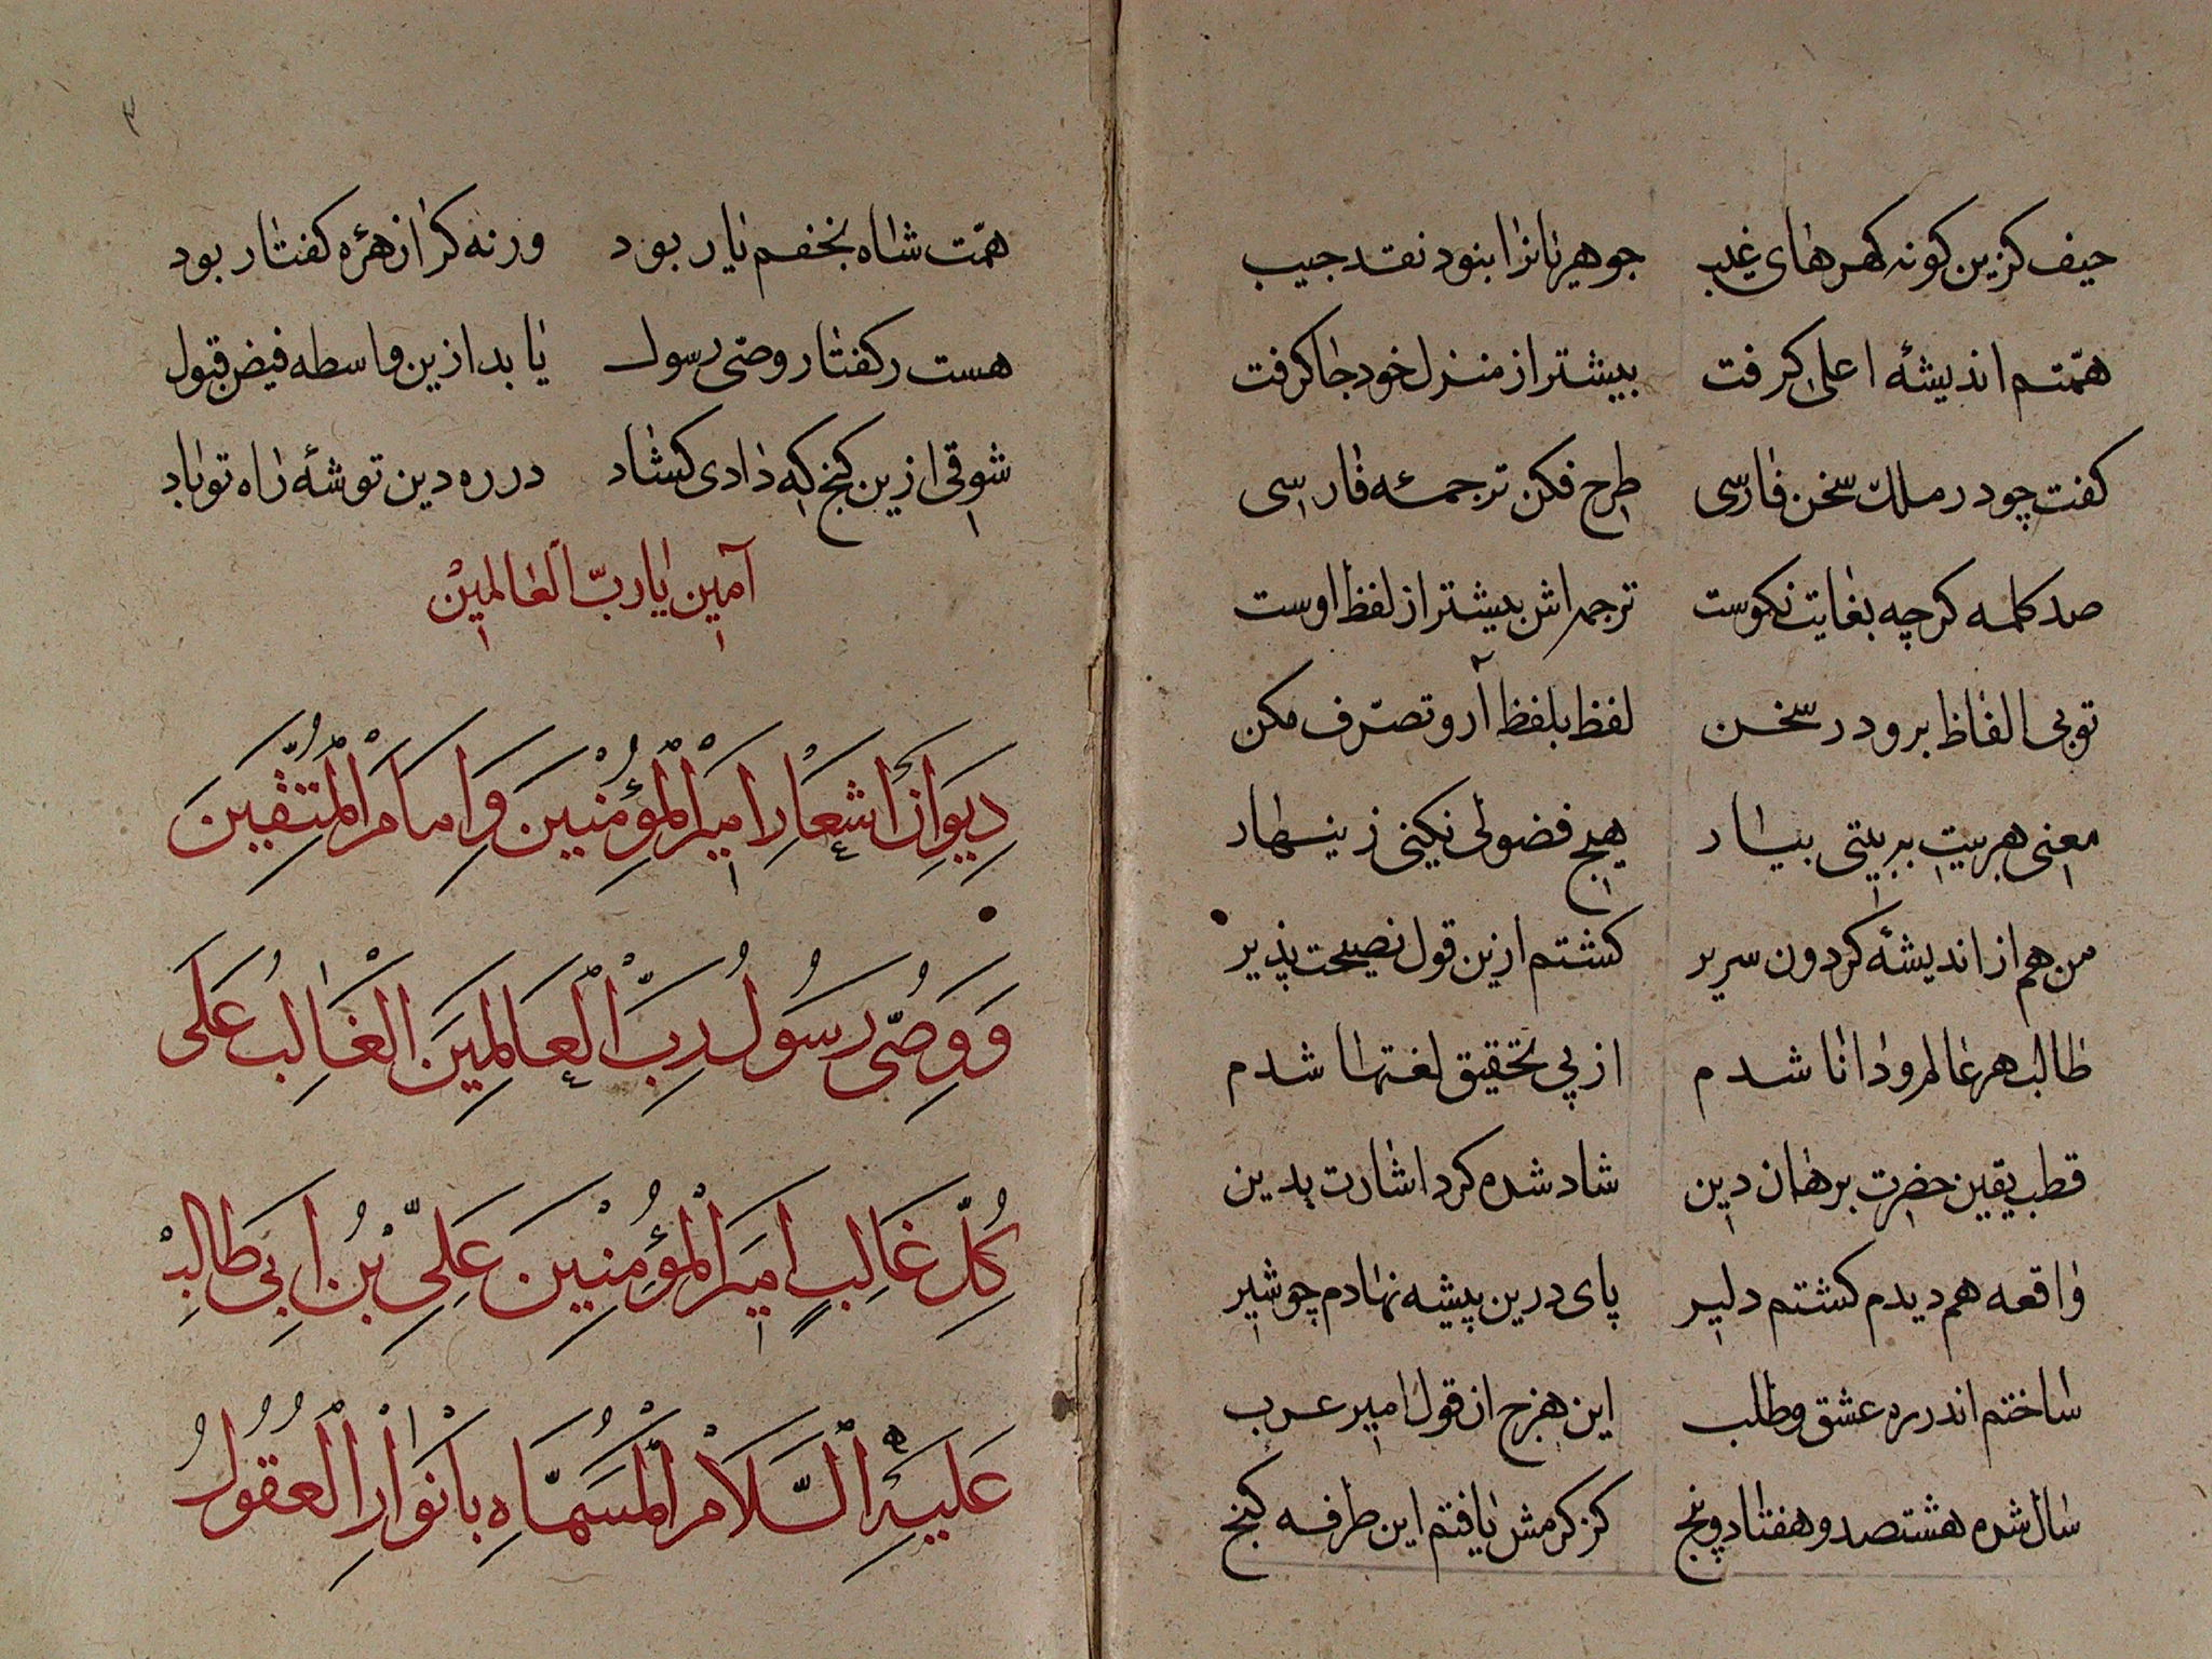 حیف کزین کونه کهرهای غیب جوهریانرا بنود نقد جیب
همّتم اندیشهٔ اعلی کرفت بیشتر از منزل خود جا کرفت
کفت چو در ملک سخن فارسی طرح فکن ترجمهٔ فارسی
صد کلمه کرچه بغایت نکوست ترجمه اش بیشتر از لفظ اوست
توبی الفاظ برو در سخن لفظ بلفظ آر و تصرّف مکن
معنی هر بیت ببیتی بیار هیچ فضولی نکنی زینهار
من هم از اندیشهٔ کردون سریر کشتم ازین قول نصیحت پذیر
طالب هر عالم و دانا شدم از پی تحقیق لغتها شدم
قطب یقین حضرت برهان دین شاد شده کرد اشارت بدین
واقعه هم دیدم کشتم دلیر پای درین پیشه نهادم چو شیر
ساختم اندر ره عشق و طلب این هزج از قول امیر عرب
سال شده هشتصد و هفتاد و پنج کز کرمش یافتم این طرفه کنج
۳
همّت شاه نجفم یار بود ور نه کرا زهرهٔ کفتار بود
هست ز کفتار وصّی رسول یابد ازین واسطه فیض قبول
شوقی ازین کنج که دادی کشاد در ره دین توشهٔ راه تو باد
آمین یا ربّ العالمین
دِیوَانِ اَشعَارِ امیرِ الْمُؤمِنْینَ وَ اِمَامِ الْمُتَّقینَ
وَ وَصّی رَسُولِ رَبِّ الْعَالَمِینَ الغَالِبُ عَلَی
کُلِّ غَالِبٍ امیَرِ الْمُؤمِنْینَ عَلِیِّ بْنِ اَبِی طَالِبْ
عَلَیْهِ السَّلَامْ الْمُسَمَّاهِ بِاَنْوَارِ الْعُقُولُ